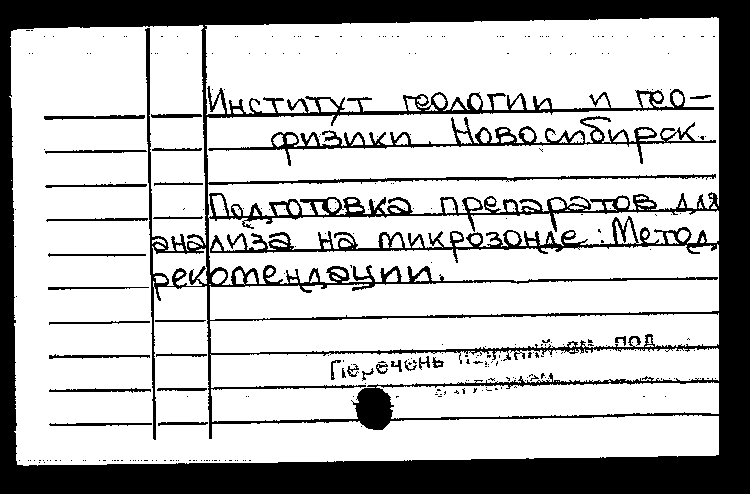 Институт геологии и гео-
физики. Новосибирск.
Подготовка препаратов для
анализа на микрозонде: Метод.
рекомендации.
Перечень изданий см. под
заглавием